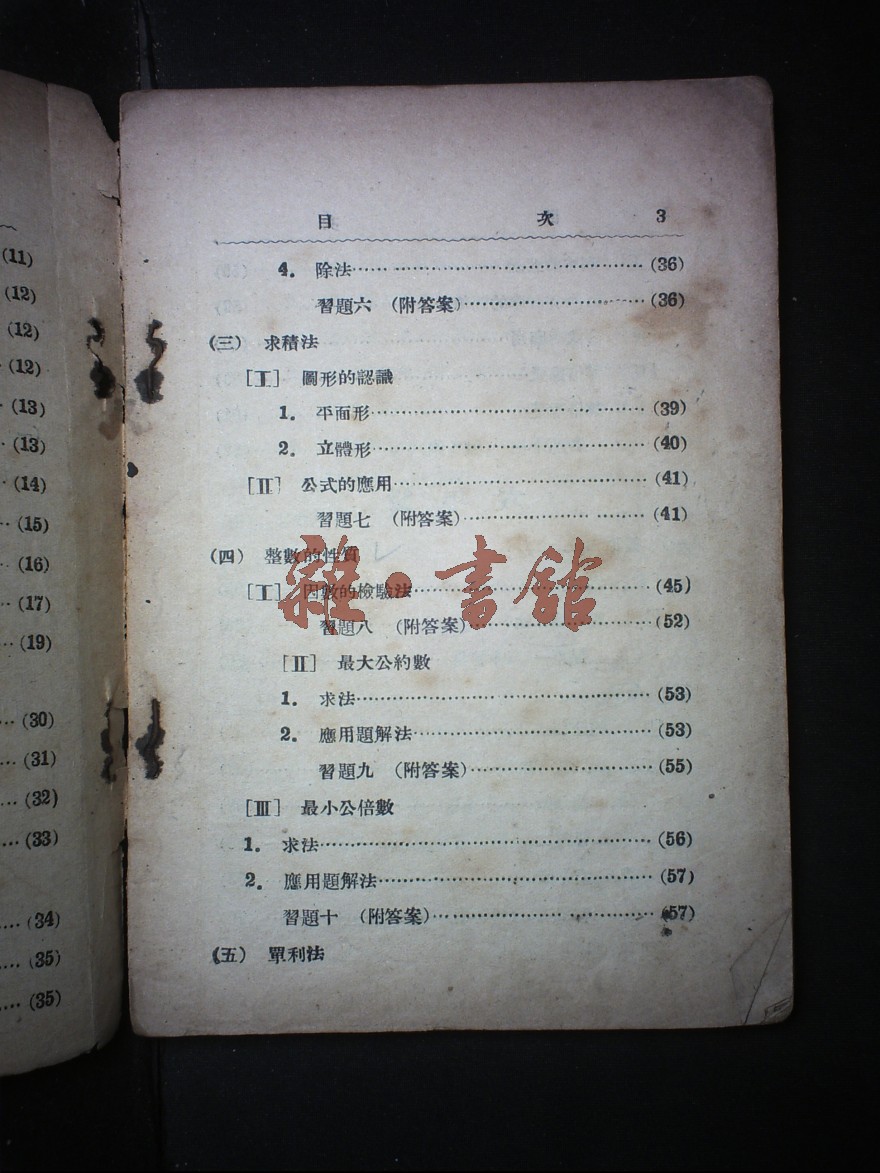 (11)
(12)
(12)
(12)
(13)
(13)
(14)
(15)
(16)
(17)
(19)
(30)
(31)
(32)
(33)
(34)
(35)
(35)
目 次 3
4. 除法……………………………(36)
習題六 (附答案)…………………(36)
(三) 求積法
[I] 圖形的認識
1. 平面形…………………………(39)
2. 立體形…………………………(40)
[II] 公式的應用………………………(41)
習題七 (附答案)…………………(41)
(四) 整數的性質
[I] 因數的檢驗法……………………(45)
習題八 (附答案)…………………(52)
[II] 最大公約數
1. 求法……………………………(53)
2. 應用題解法……………………(53)
習題九 (附答案)…………………(55)
[III] 最小公倍數
1. 求法………………………………(56)
2. 應用題解法………………………(57)
習題十 (附答案)……………………(57)
(五) 單利法
雜·書館